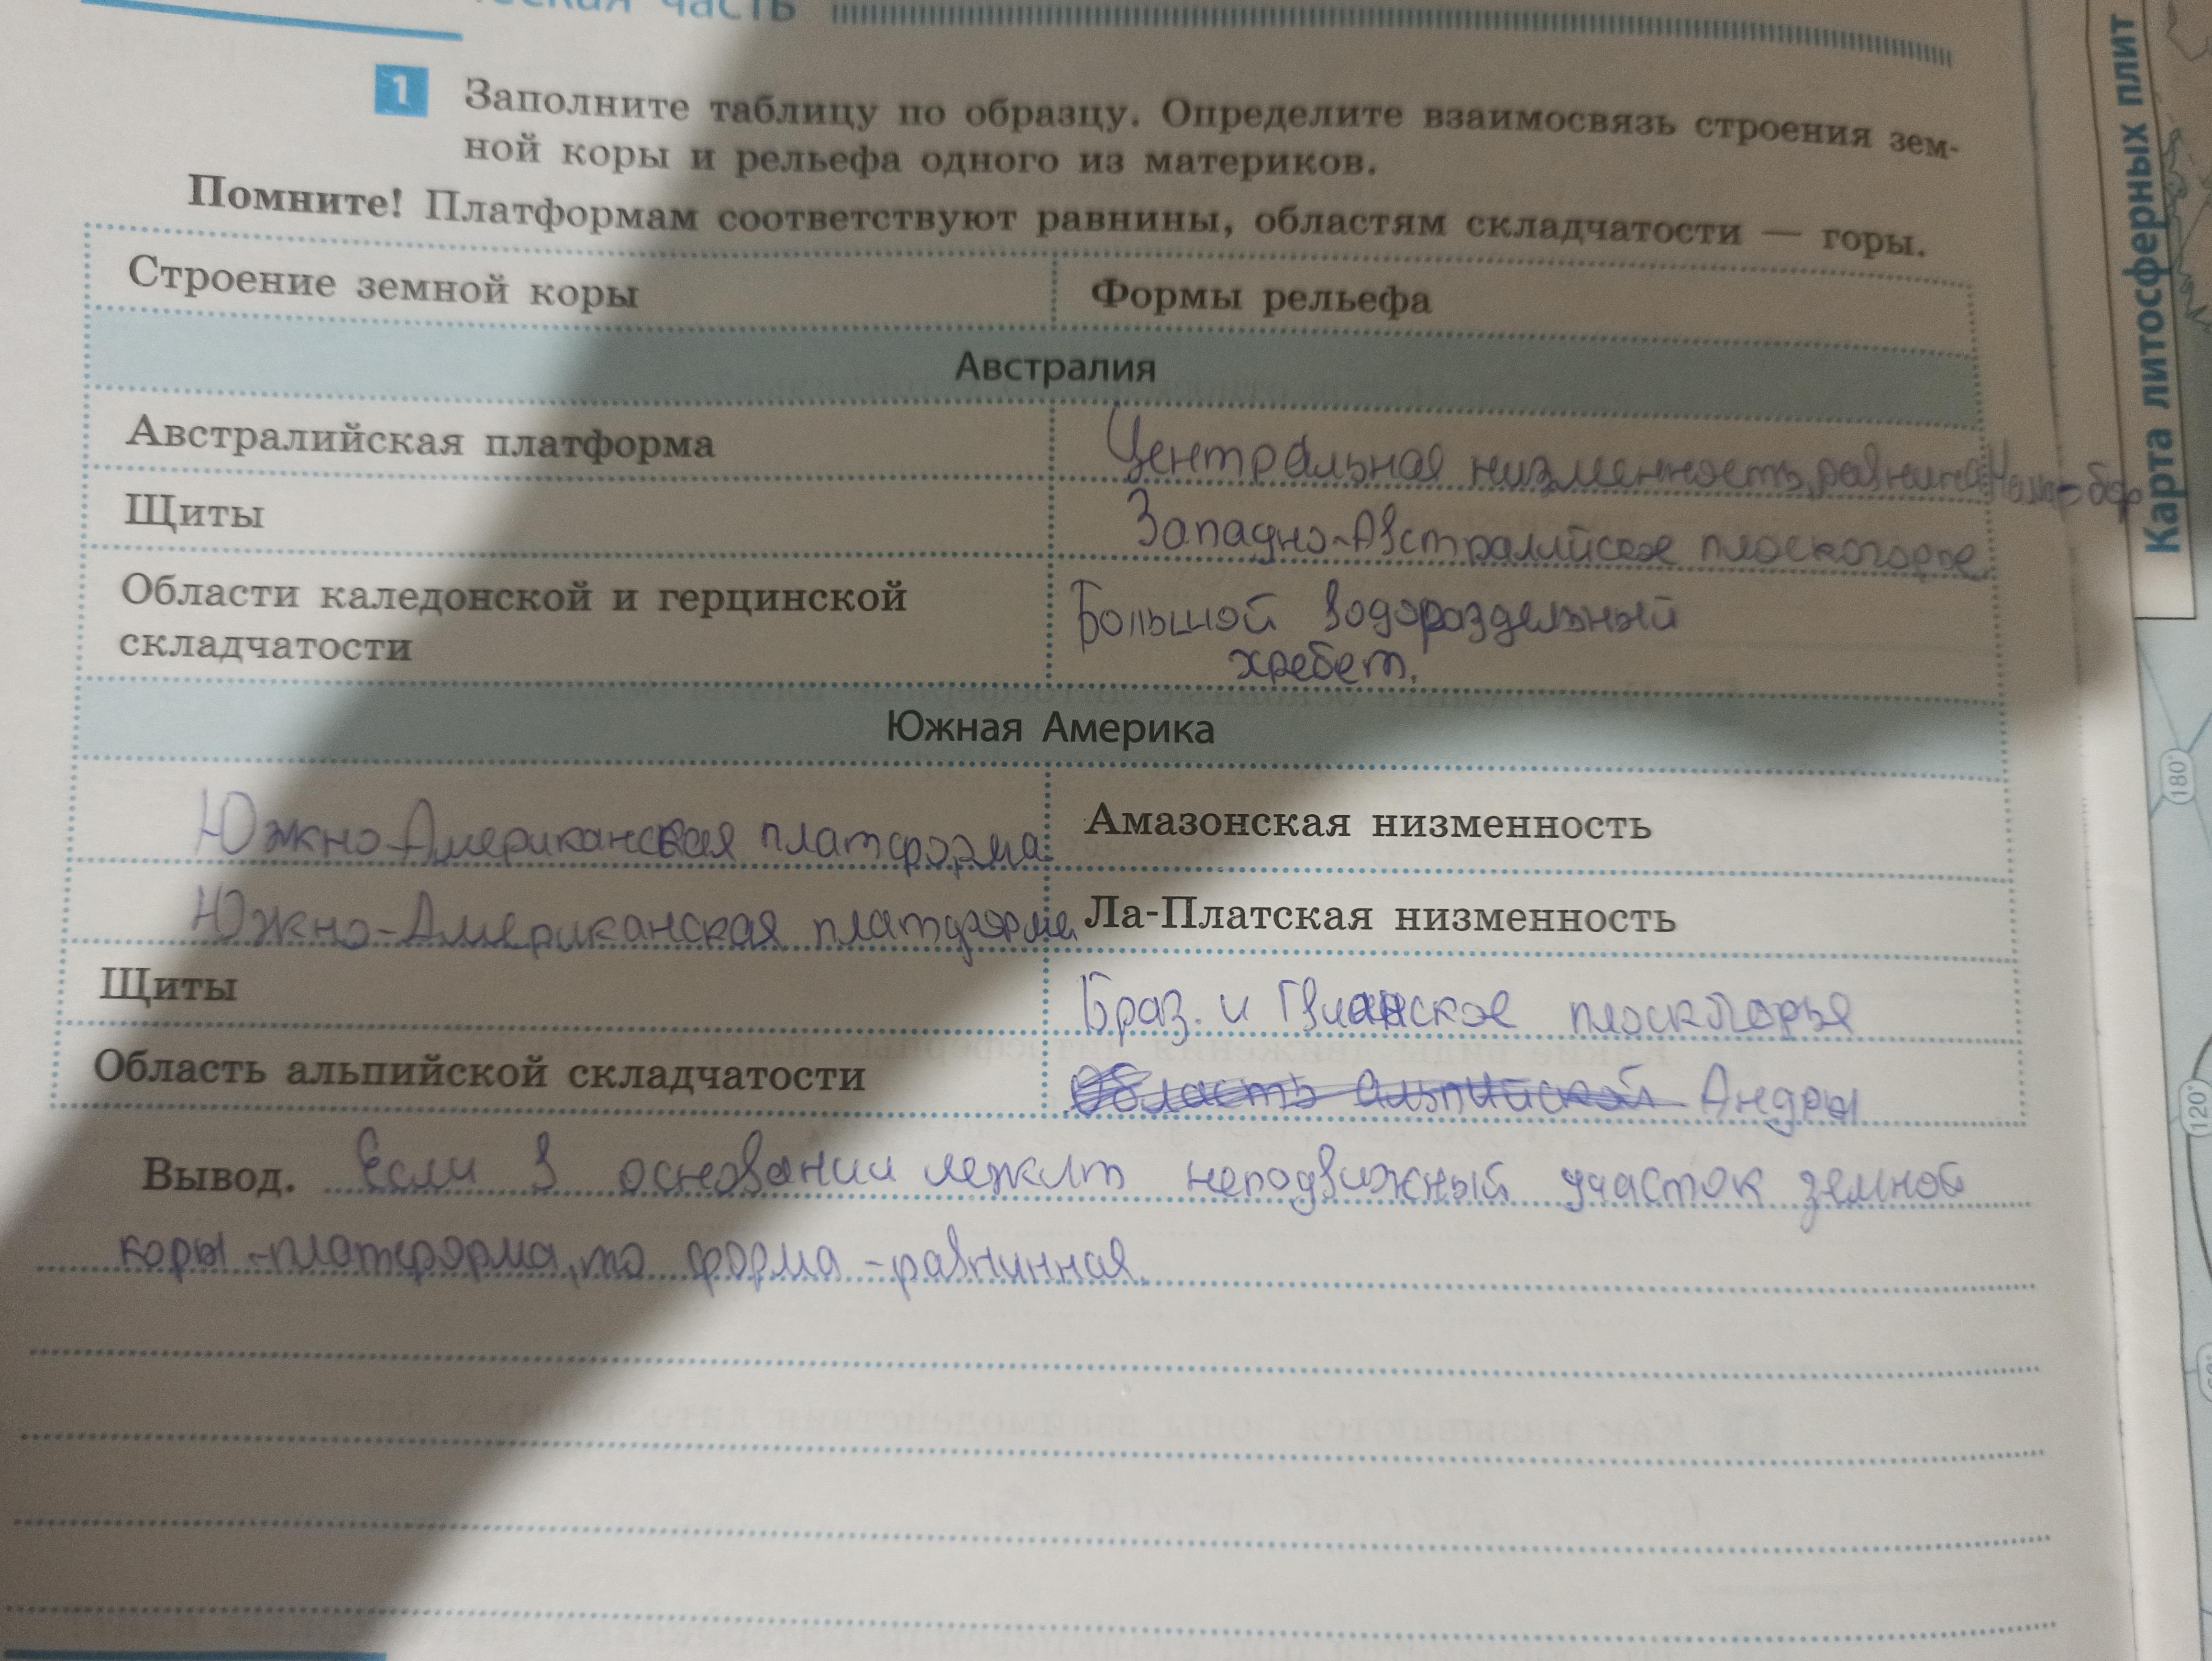 ческая часть
1 Заполните таблицу по образцу. Определите взаимосвязь строения зем-
ной коры и рельефа одного из материков.
Помните! Платформам соответствуют равнины, областям складчатости — горы.
Строение земной коры Формы рельефа
Австралия
Австралийская платформа Центральная низменность, равнина
Щиты Западно-Австралийское плоскогорье
Области каледонской и герцинской
складчатости
Большой водораздельный
хребет.
Южная Америка
Южно-Американская платформа Амазонская низменность
Южно-Американская платформа Ла-Платская низменность
Щиты Браз. и Гвианское плоскогорья
Область альпийской складчатости Область альпийской Андры
Вывод. Если в основании лежит неподвижный участок земной
коры -платформа, то форма -равнинная.
Карта литосферных плит
180°
120°